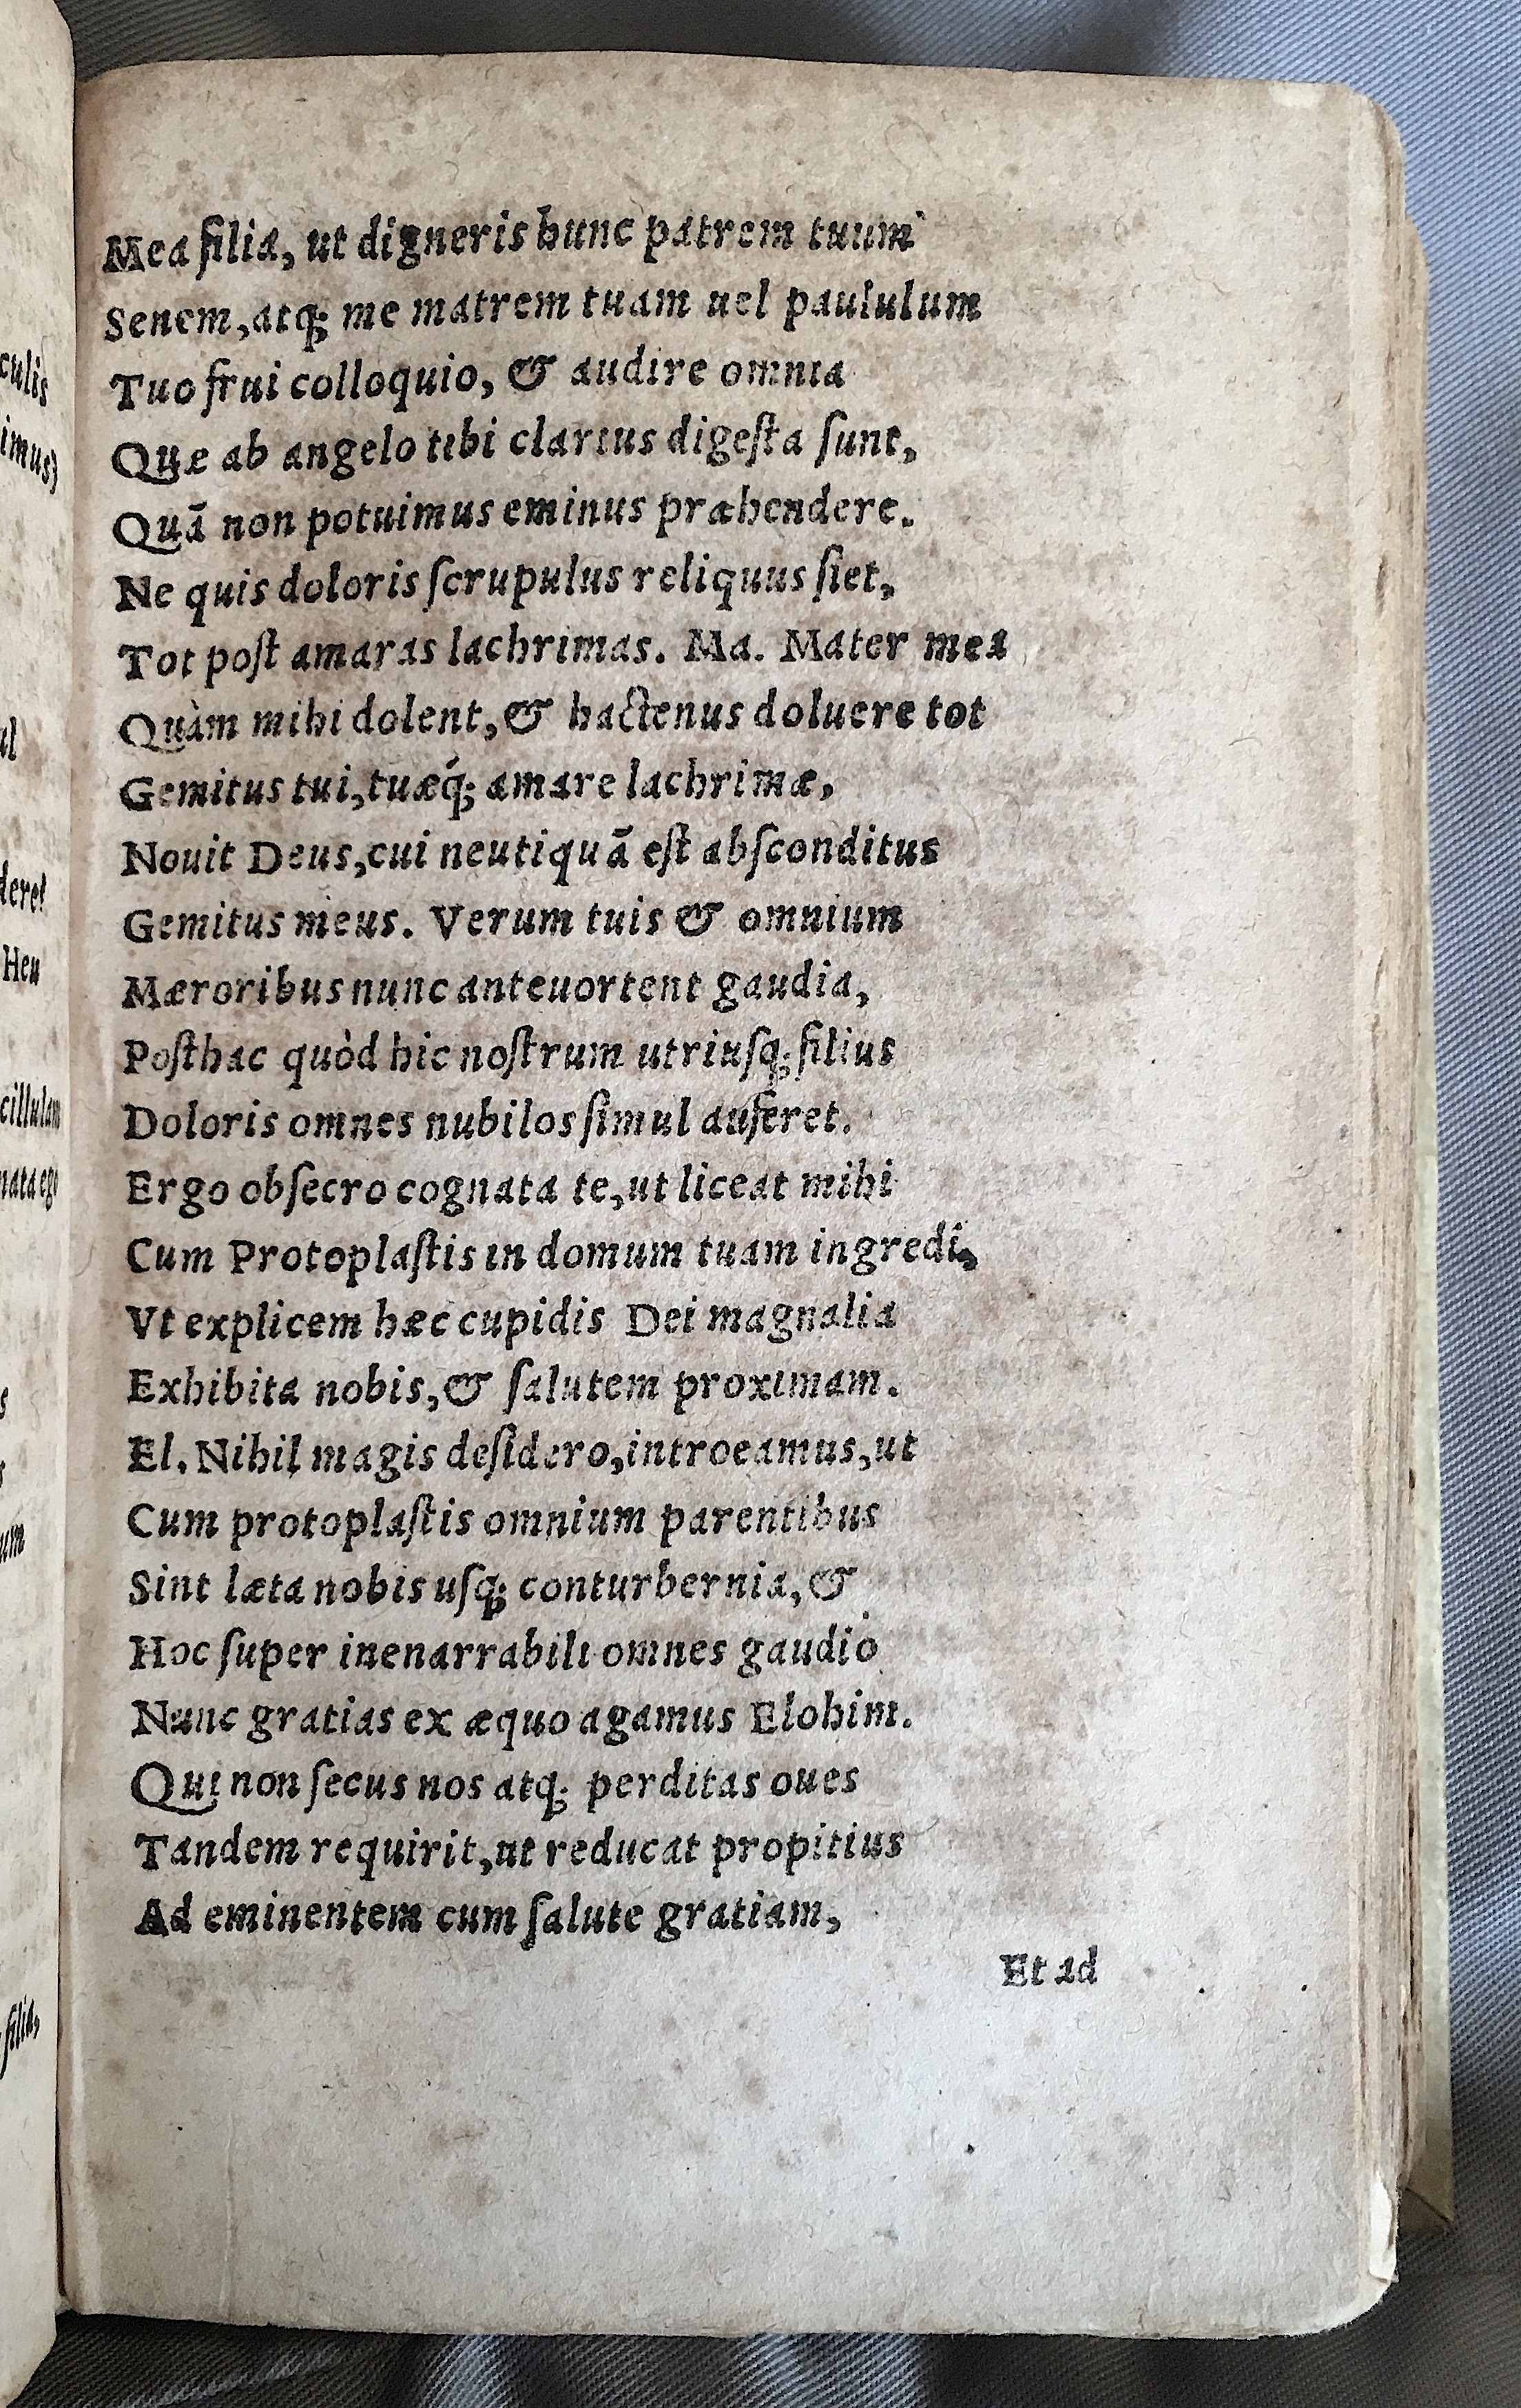 Mea filia, ut digneris hunc patrem tuum
Senem, atq; me matrem tuam uel paululum
Tuo frui colloquio, & audire omnia
Quæ ab angelo tibi clarius digeſta ſunt,
Quā non potuimus eminus præhendere.
Ne quis doloris ſcrupulus reliquus ſiet,
Tot poſt amaras lachrimas. Ma. Mater mea
Quàm mihi dolent, & hactenus doluere tot
Gemitus tui, tuæq́; amare lachrimæ,
Nouit Deus, cui neutiquā eſt abſconditus
Gemitus meus. Verum tuis & omnium
Mæroribus nunc anteuortent gaudia,
Poſthac quòd hic noſtrum utriuſq; filius
Doloris omnes nubilos ſimul auferet.
Ergo obſecro cognata te, ut liceat mihi
Cum Protoplaſtis in domum tuam ingredi,
Vt explicem hæc cupidis Dei magnalia
Exhibita nobis, & ſalutem proximam.
El. Nihil magis deſidero, introeamus, ut
Cum protoplaſtis omnium parentibus
Sint læta nobis uſq; conturbernia, &
Hoc ſuper inenarrabili omnes gaudio
Nunc gratias ex æquo agamus Elohim.
Qui non ſecus nos atq; perditas oues
Tandem requirit, ut reducat propitius
Ad eminentem cum ſalute gratiam,
Et ad